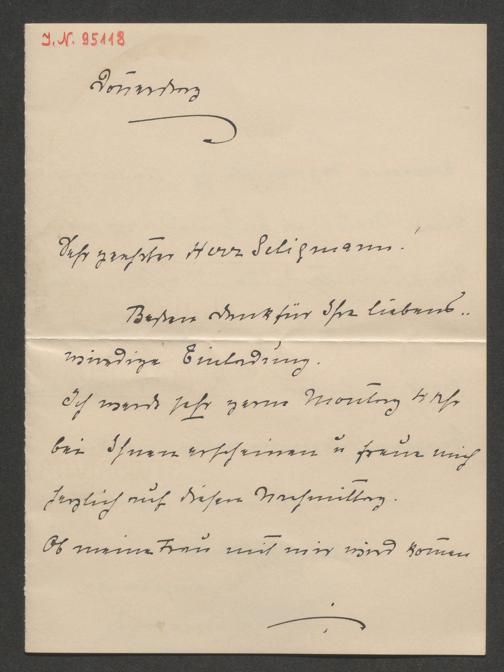 I. N. 95118
Donnerstag
Sehr geehrter Herr Seligmann!
Besten Dank für Ihre liebens-
würdige Einladung.
Ich werde sehr gerne Montag 4 Uhr
bei Ihnen erscheinen u freue mich
herzlich auf diesen Nachmittag.
Ob meine Frau mit mir wird kom̄en